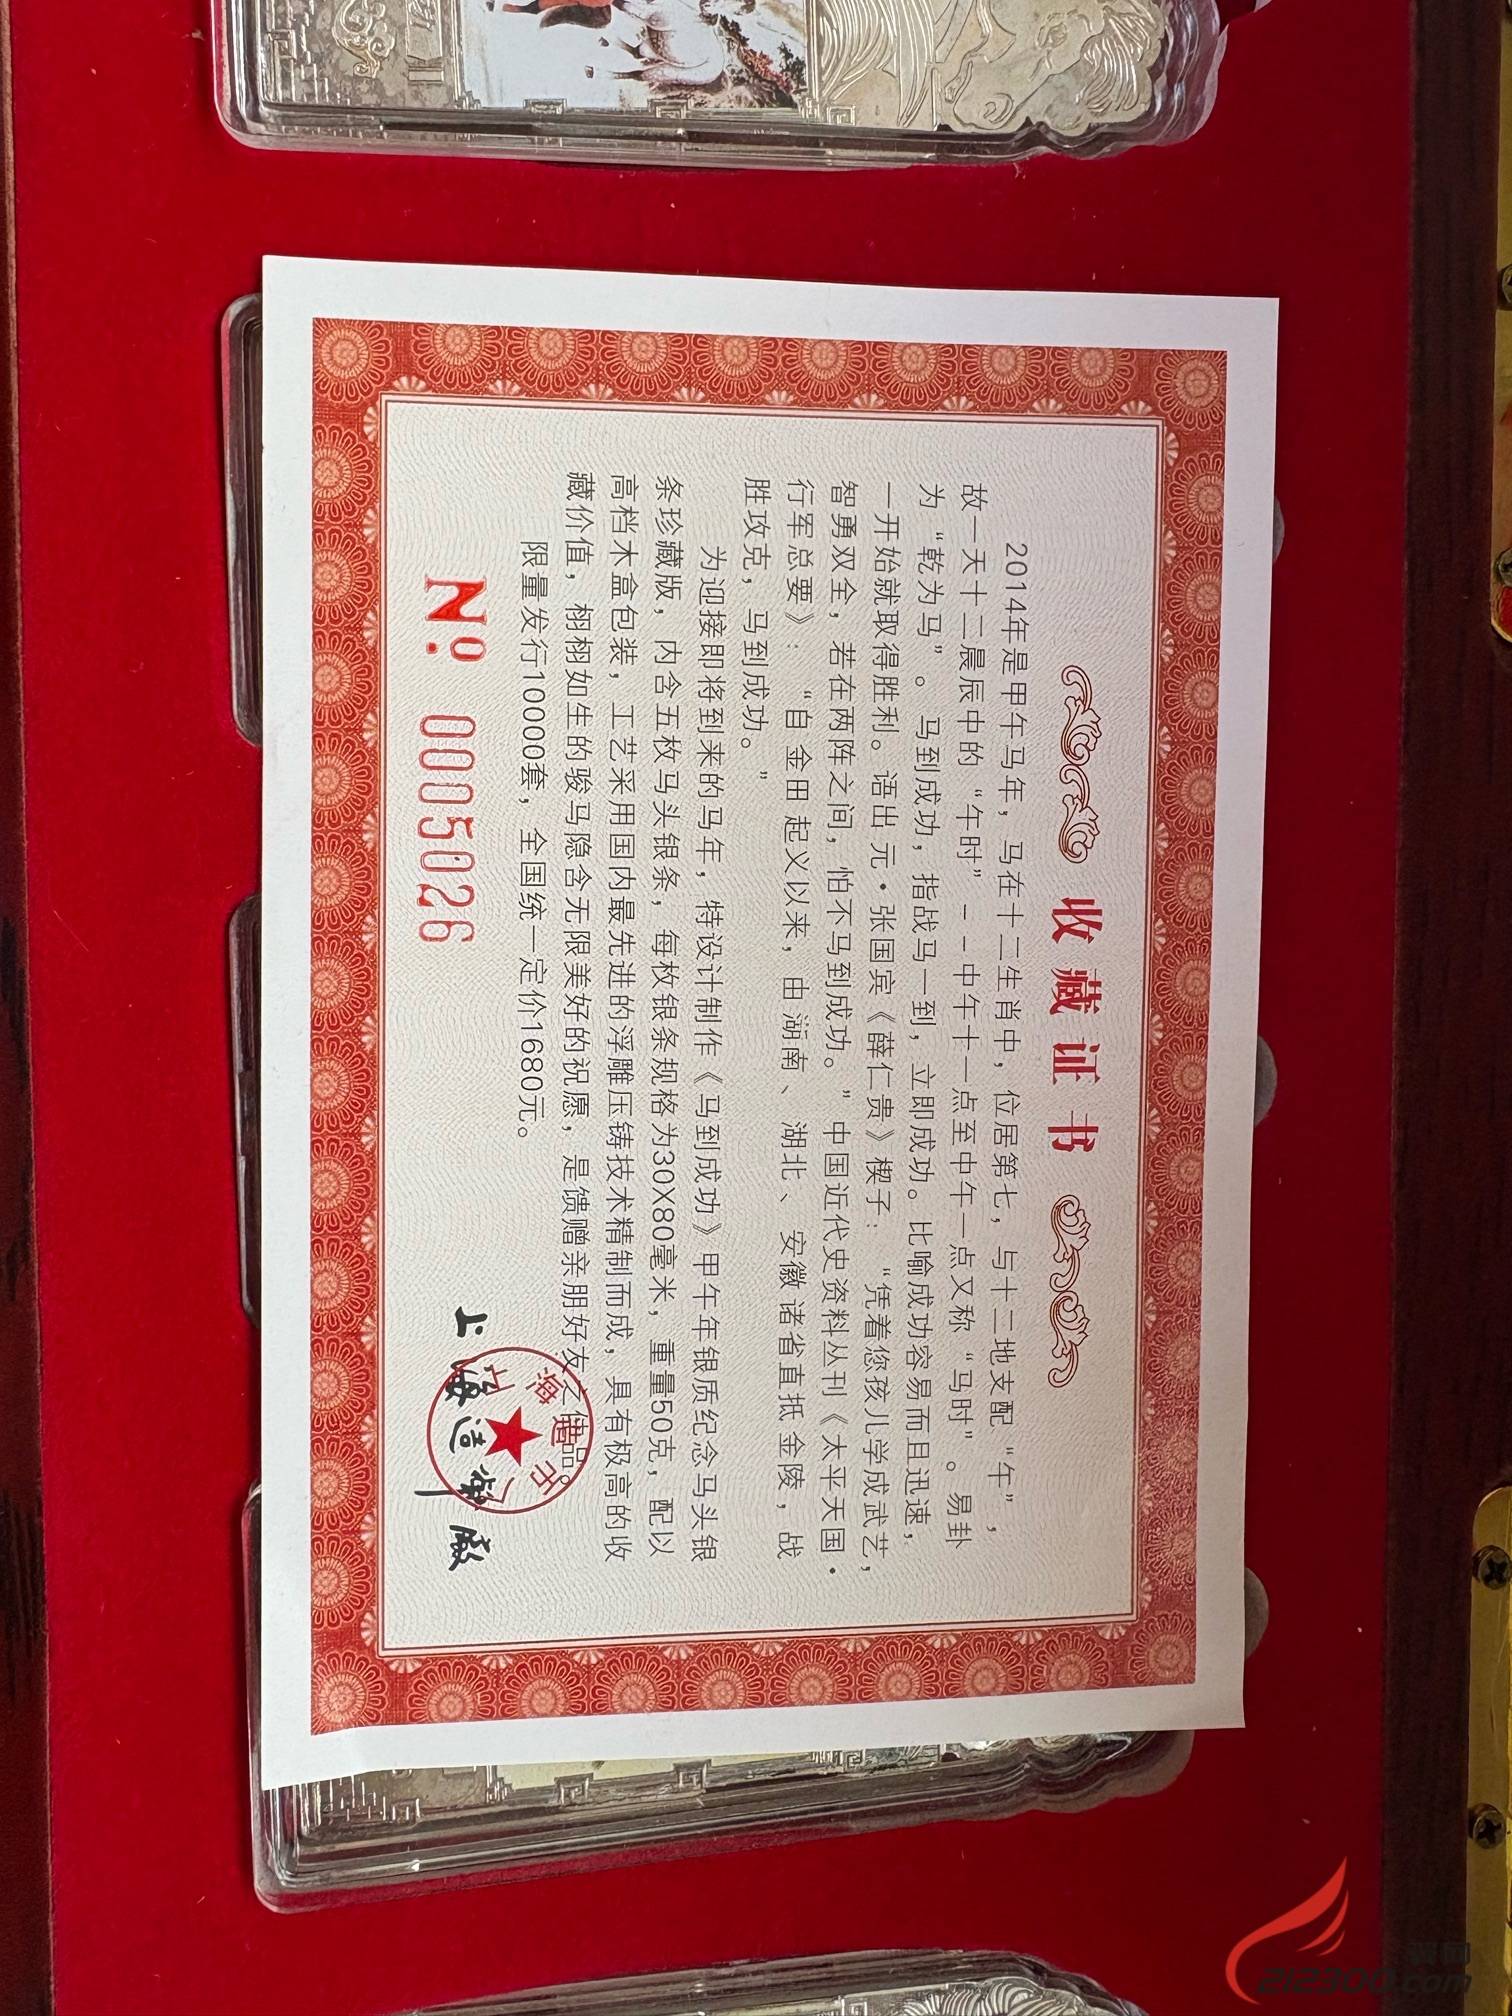 收藏证书
2014年是甲午马年，马在十二生肖中，位居第七，与十二地支配“午”，
故一天十二晨辰中的“午时”--中午十一点至中午一点又称“马时”。易卦
为“乾为马”。马到成功，指战马一到，立即成功。比喻成功容易而且迅速，
一开始就取得胜利。语出元·张国宾《薛仁贵》楔子：“凭着您孩儿学成武艺，
智勇双全，若在两阵之间，怕不马到成功。”中国近代史资料丛刊《太平天国·
行军总要》：“自金田起义以来，由湖南、湖北、安徽诸省直抵金陵，战
胜攻克，马到成功。”
为迎接即将到来的马年，特设计制作《马到成功》甲午年银质纪念马头银
条珍藏版，内含五枚马头银条，每枚银条规格为30X80毫米，重量50克，配以
高档木盒包装，工艺采用国内最先进的浮雕压铸技术精制而成，具有极高的收
藏价值，栩栩如生的骏马隐含无限美好的祝愿，是馈赠亲朋好友之佳品。
限量发行10000套，全国统一定价1680元。
№: 0005026
上海造币厂
212300.com